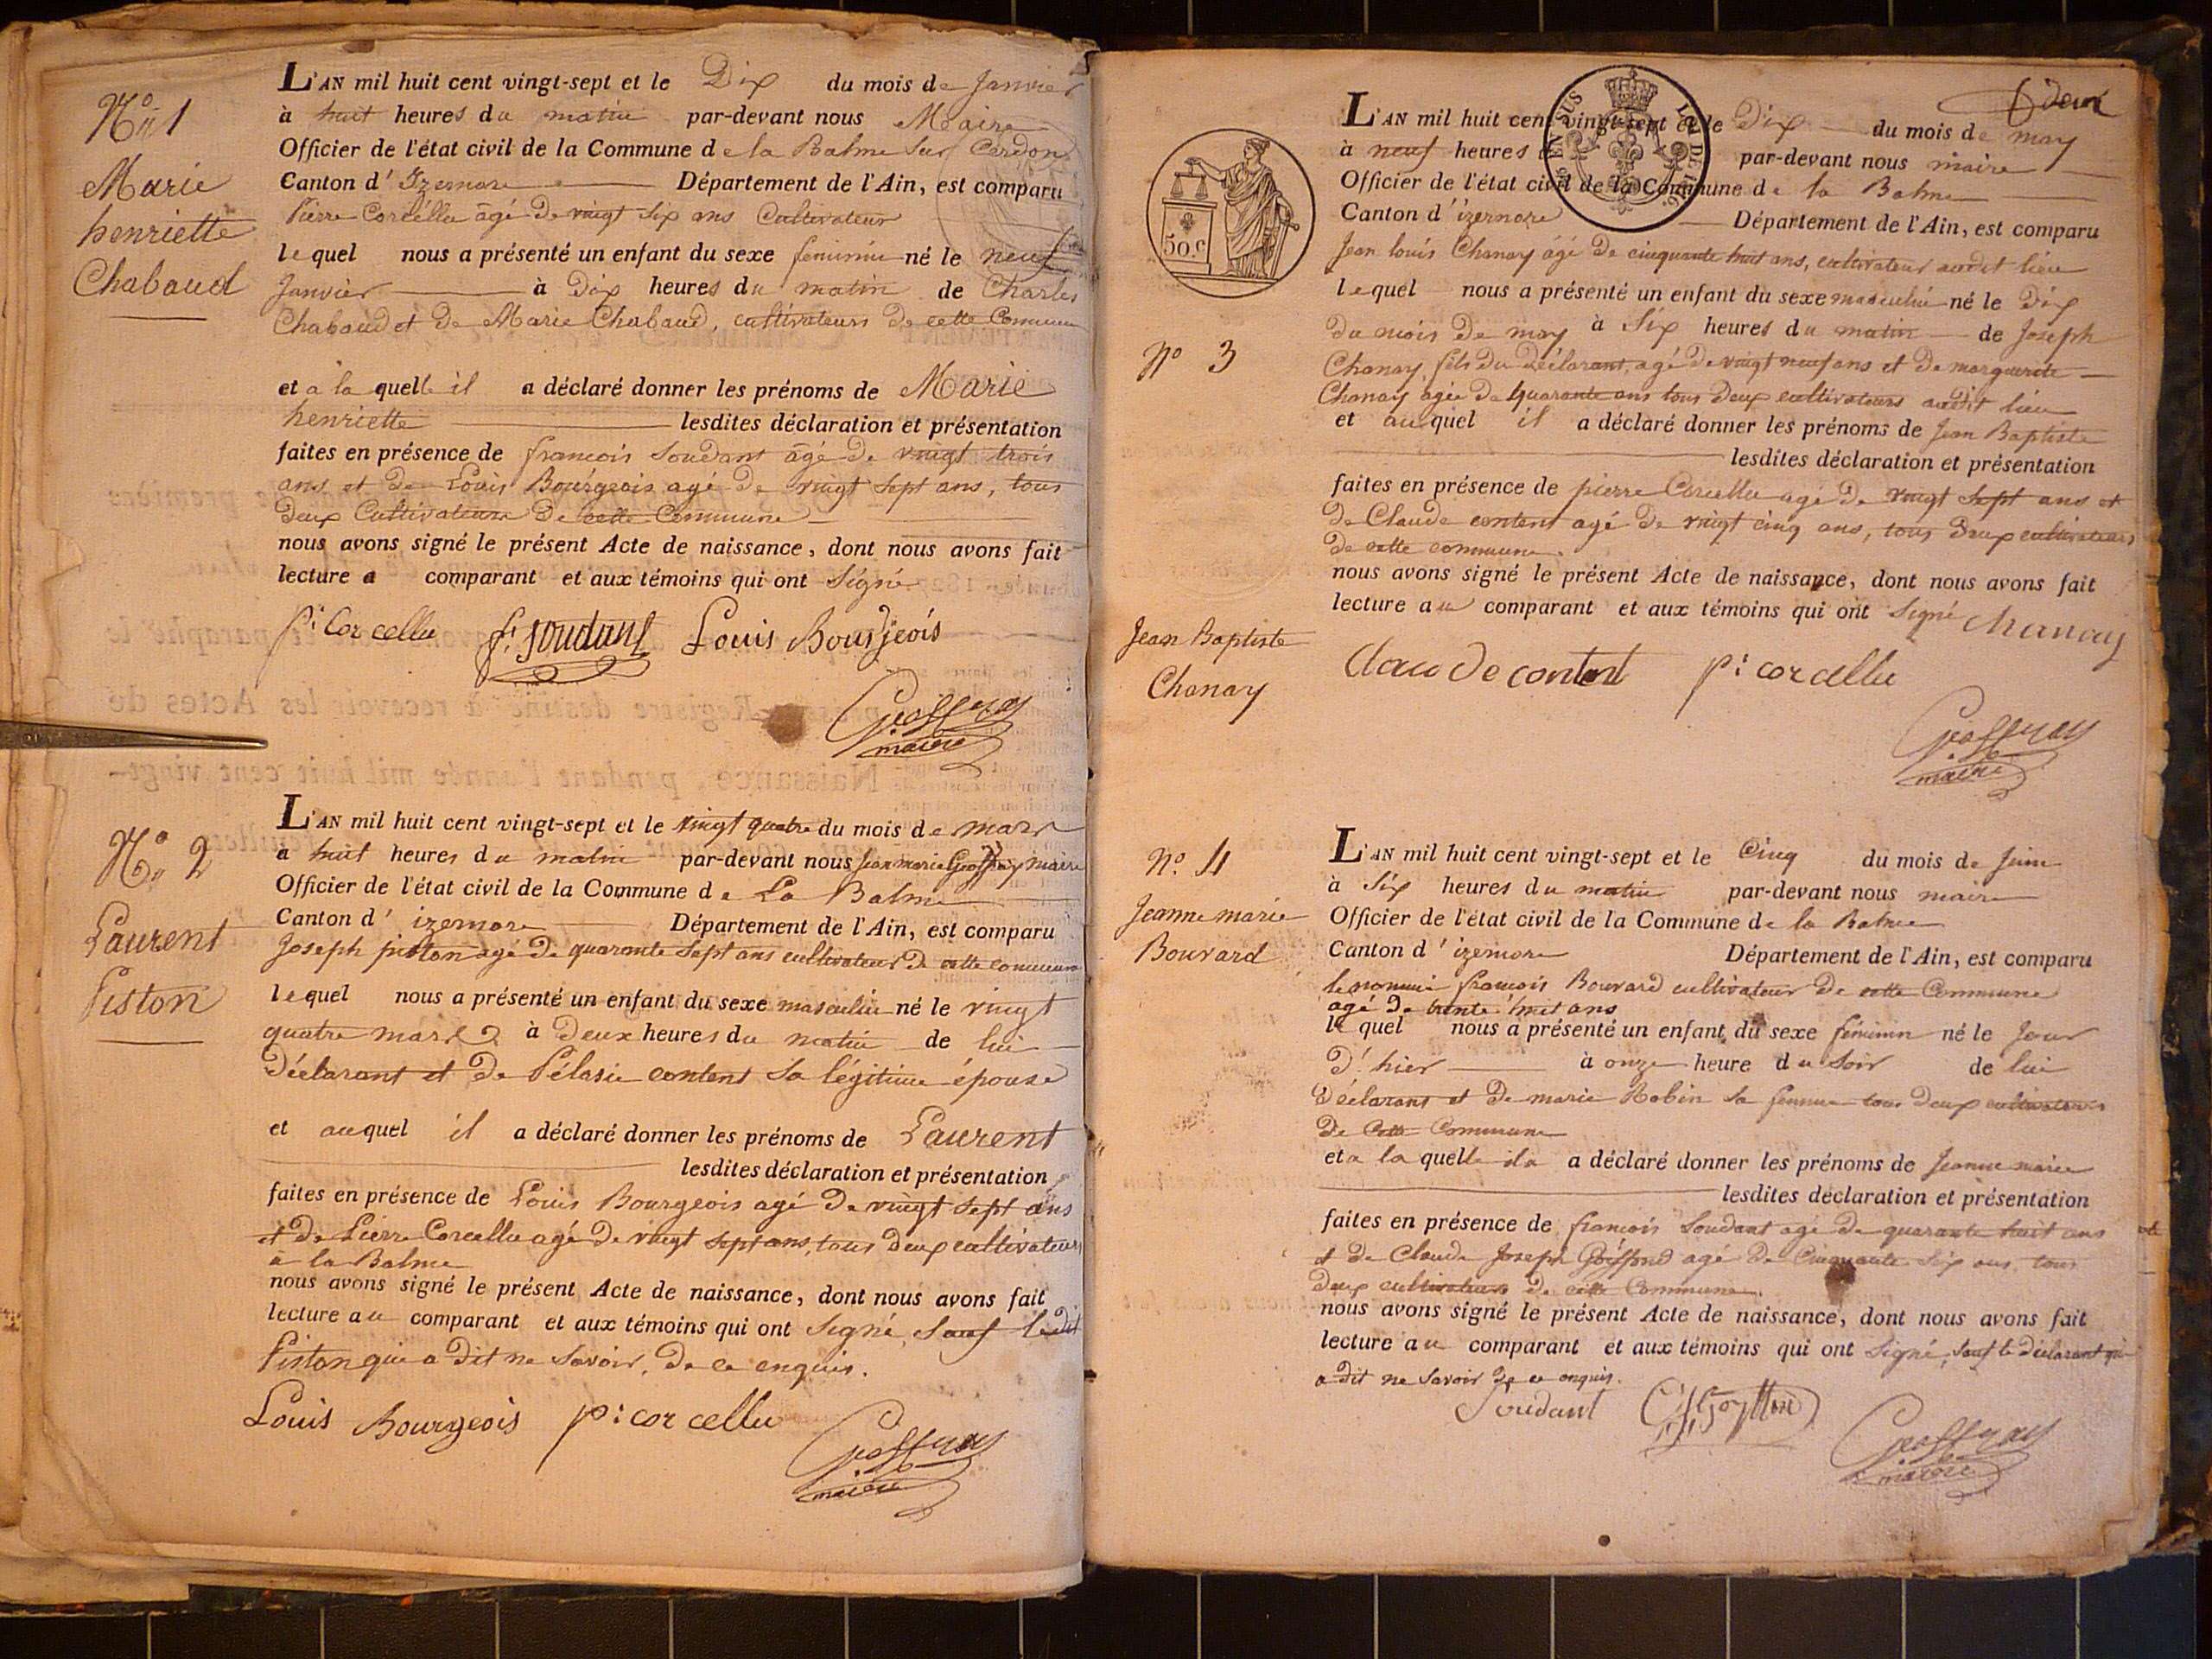 N° 1
Marie
henriette
Chabaud
L'AN mil huit cent vingt-sept et le Dix du mois de Janvier
à huit heures du matin par-devant nous Maire
Officier de l'état civil de la Commune de la Balme sur Cerdon
Canton d' Izernore Département de l'Ain, est comparu
Pierre Corcellu âgé de vingt six ans Cultivateur
lequel nous a présenté un enfant du sexe féminin né le neuf
Janvier à Dix heures du matin de Charles
Chabaud et de Marie Chabaud, cultivateurs de cette Commune
et à la quelle il a déclaré donner les prénoms de Marie
henriette lesdites déclaration et présentation
faites en présence de francois Soudant âgé de vingt trois
ans et de Louis Bourgeois agé de vingt sept ans, tous
deux Cultivateurs de cette Commune
nous avons signé le présent Acte de naissance, dont nous avons fait
lecture a comparant et aux témoins qui ont Signé
p: Corcellu f. Soudant Louis Bourjeois
maire
N° 2
Laurent
Piston
L'AN mil huit cent vingt-sept et le vingt quatre du mois de mars
à huit heures du matin par-devant nous Jean marie maire
Officier de l'état civil de la Commune de La Balme
Canton d' izernore Département de l'Ain, est comparu
Joseph piston agé de quarante Sept ans cultivateur de cette commune
lequel nous a présenté un enfant du sexe masculin né le vingt
quatre mars à Deux heures du matin de lui
Déclarant et de Pélasie content sa légitime épouse
et auquel il a déclaré donner les prénoms de Laurent
lesdites déclaration et présentation
faites en présence de Louis Bourgeois agé de vingt sept ans
et de Pierre Corcellu agé de vingt sept ans, tous deux cultivateurs
à la Balme
nous avons signé le présent Acte de naissance, dont nous avons fait
lecture au comparant et aux témoins qui ont Signé, Sauf le dit
Piston qui a dit ne savoir, de ce enquis.
Louis Bourgeois p: corcellu
maire
deux
EN SUS
LOI DE 1816.
50.c
N° 3
Jean Baptiste
Chanay
L'AN mil huit cent vingt-sept et le Dix du mois de may
à neuf heures par-devant nous maire
Officier de l'état civil de la Commune de la Balme
Canton d' izernore Département de l'Ain, est comparu
Jean louis Chanay âgé de cinquante huit ans, cultivateur audit lieu
lequel nous a présenté un enfant du sexe masculin né le Dix
du mois de may à Six heures du matin de Joseph
Chanay, fils du Déclarant, agé de vingt neuf ans et de marguerite
Chanay agée de quarante ans tous deux cultivateurs audit lieu
et auquel il a déclaré donner les prénoms de Jean Baptiste
lesdites déclaration et présentation
faites en présence de pierre Corcellu agé de vingt Sept ans et
de Claude content agé de vingt cinq ans, tous deux cultivateurs
de cette commune.
nous avons signé le présent Acte de naissance, dont nous avons fait
lecture au comparant et aux témoins qui ont Signé Chanay
Claude content p: corcellu
maire
N°. 4
Jeanne marie
Bouvard
L'AN mil huit cent vingt-sept et le Cinq du mois de Juin
à Six heures du matin par-devant nous maire
Officier de l'état civil de la Commune de la Balme
Canton d' izernore Département de l'Ain, est comparu
le nommé francois Bouvard cultivateur de cette Commune
agé de trente huit ans
lequel nous a présenté un enfant du sexe féminin né le Jour
D'hier à onze heure du Soir de lui
Déclarant et de marie Robin sa femme tous deux cultivateurs
de Cette Commune
et a la quelle ila a déclaré donner les prénoms de Jeanne marie
lesdites déclaration et présentation
faites en présence de francois Soudant agé de quarante huit ans
et de Claude Joseph Goiffond agé de Cinquante Six ans, tous
deux cultivateurs de cette Commune.
nous avons signé le présent Acte de naissance, dont nous avons fait
lecture au comparant et aux témoins qui ont Signé, Sauf le déclarant qui
a dit ne savoir de ce enquis.
Soudant
maire